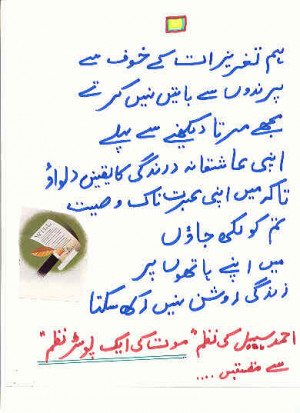 ہم تعزیرات کے خوف سے
پرندوں سے باتیں نہیں کرتے
مجھے مرتا دیکھنے سے پہلے
اپنی عاشقانہ درندگی کا یقین دلاؤ
تاکہ میں اپنی عبرت ناک وصیت
تم کو لکھ جاؤں
میں اپنے ہاتھوں پر
زندگی روشن نہیں رکھ سکتا
احمد سہیل کی نظم "موت کی ایک پوسٹر نظم"
سے مقتبس ....